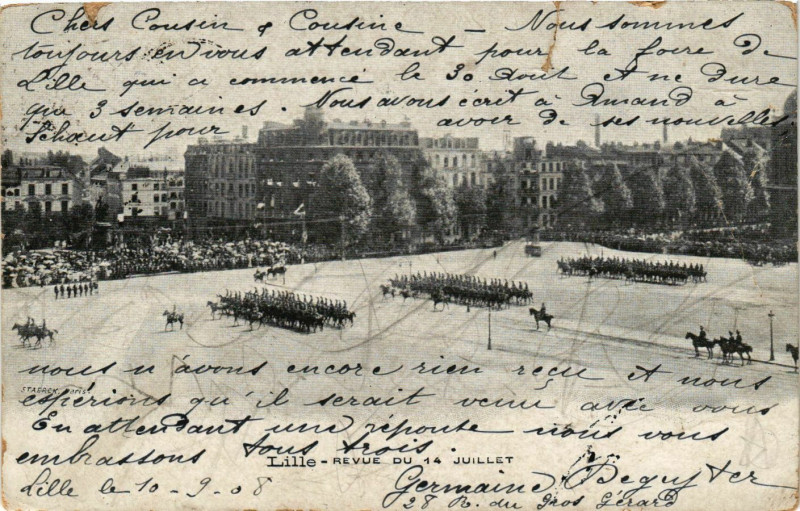 Chers Cousin & Cousine — Nous sommes
toujours en vous attendant pour la foire de
Lille qui a commencé le 30 Aout et ne dure
que 3 semaines. Nous avons écrit à Amand à
pour avoir de ses nouvelles
nous n'avons encore rien reçu et nous
STAERCK Paris
espérions qu'il serait venu avec vous
En attendant une réponte nous vous
embrassons tous trois.
Lille - REVUE DU 14 JUILLET
Lille le 10-9-08 Germaine Deguyter
28 R. du Gros Gérard